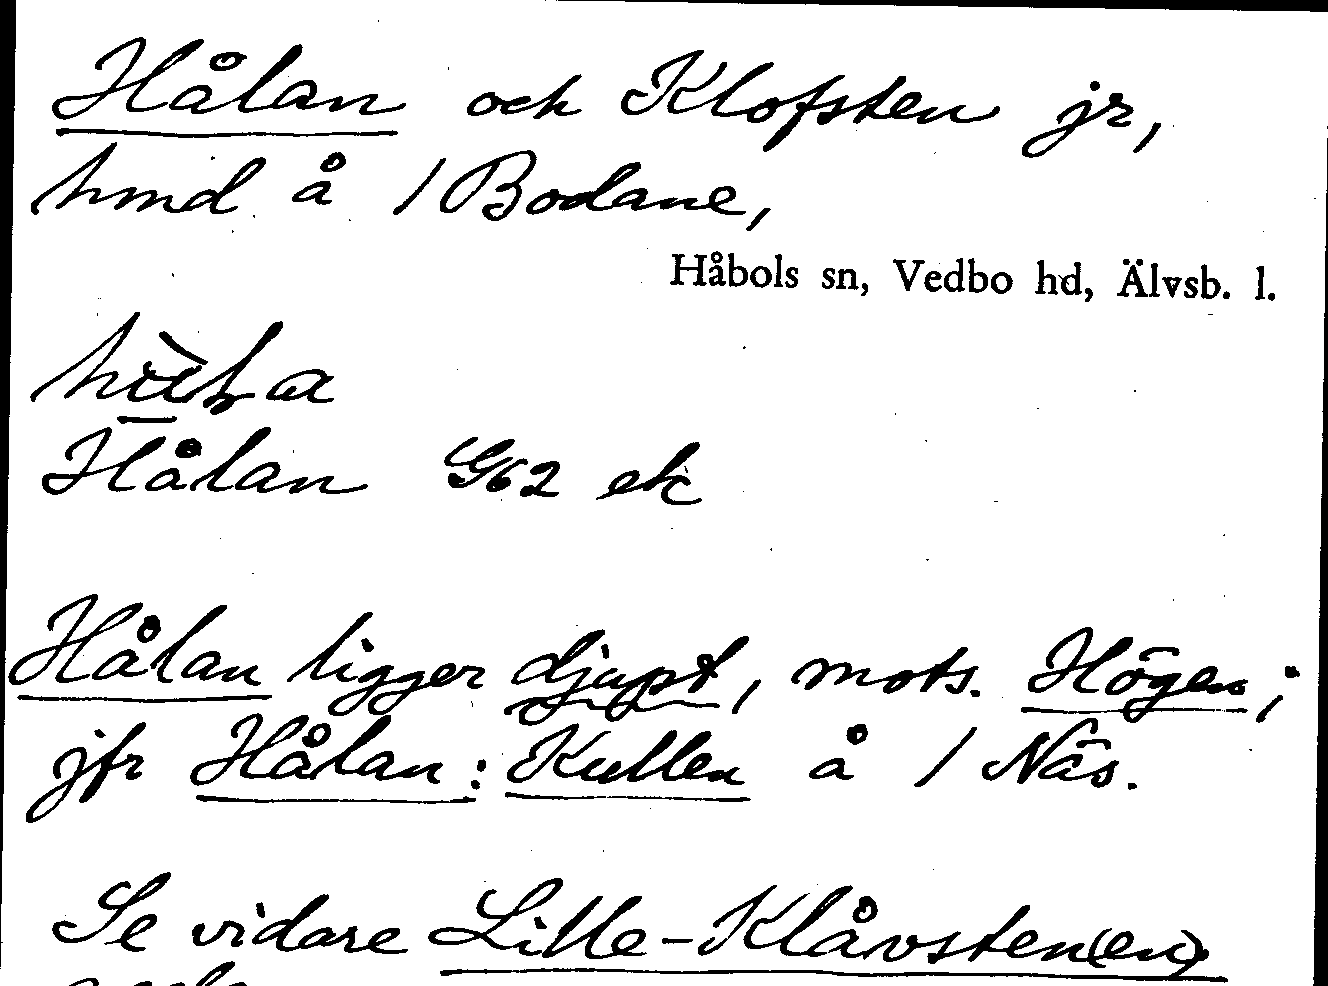 Hålan och Klofsten jr,
hmd å 1 Bodane,
Håbols sn, Vedbo hd, Älvsb. l.
Hålan G62 ek
Hålan ligger djupt, mots. Högen;
jfr Hålan: Kullen å 1 Näs.
Se vidare Lille-Klåvsten(en)